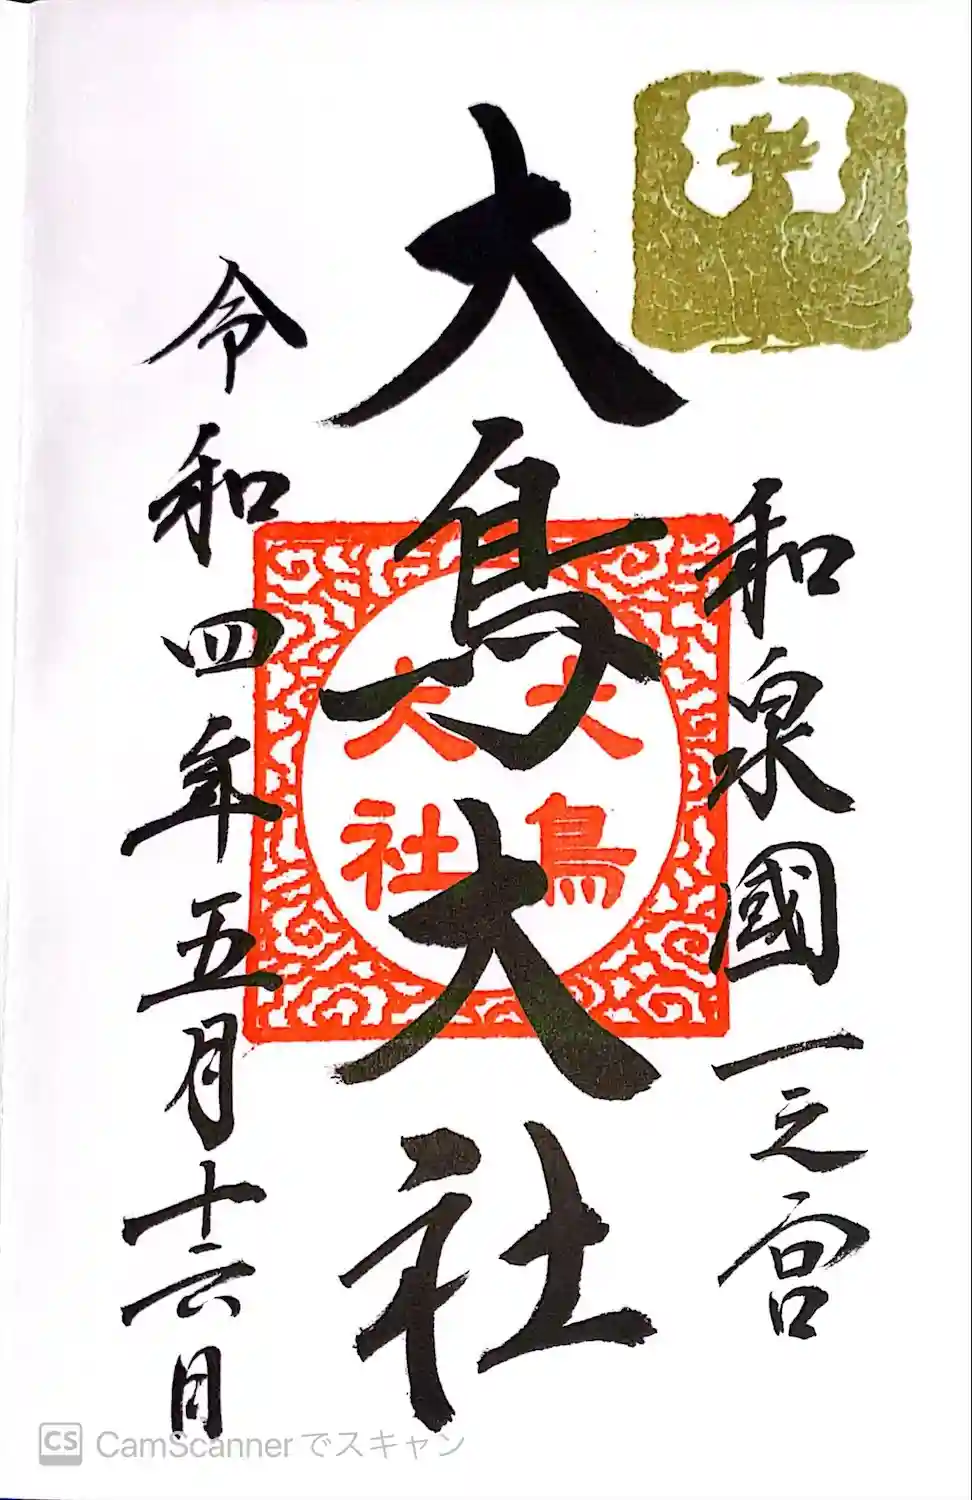 和泉國一之宮
大鳥大社
大鳥
大社
令和四年五月十六日
CS CamScannerでスキャン